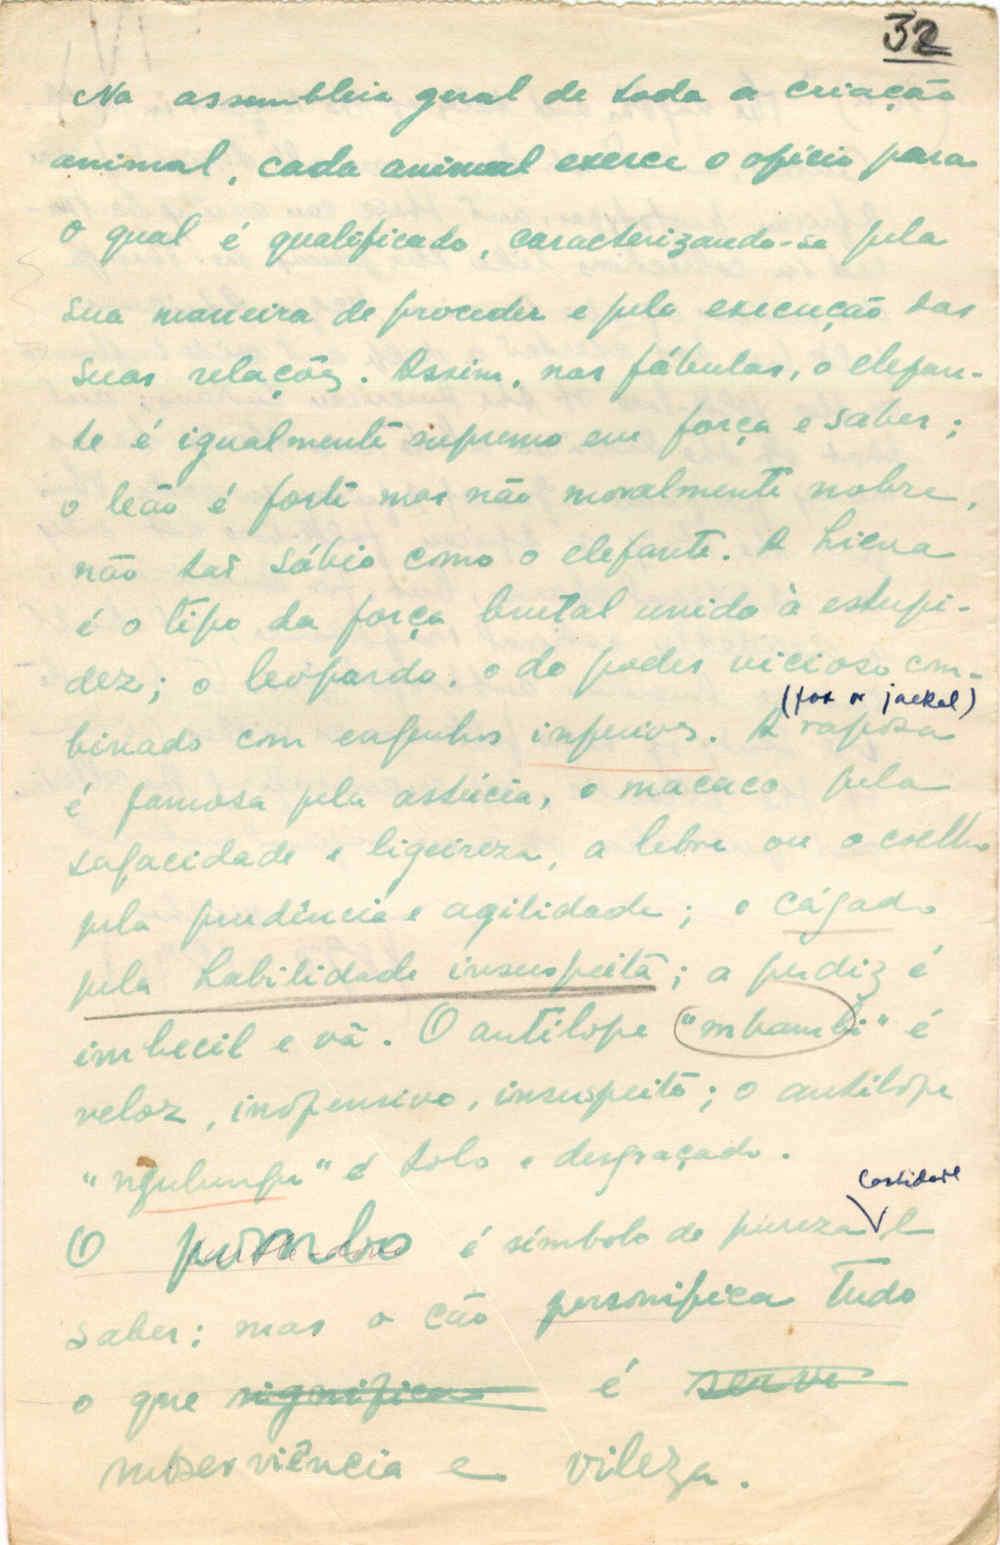 32
Na assembleia geral de toda a criação
animal, cada animal exerce o ofício para
o qual é qualificado, caracterizando-se pela
sua maneira de proceder e pela execução das
suas relações. Assim, nas fábulas, o elefan-
te é igualmente supremo em força e saber;
o leão é forte mas não moralmente nobre,
não tão sábio como o elefante. A hiena
é o tipo da força brutal unida à estupi-
dez; o leopardo, o do poder vicioso com-
(fox or jackal)
binado com engenhos inferiores. A raposa
é famosa pela astúcia, o macaco pela
sagacidade e ligeireza, a lebre ou o coelho
pela prudência e agilidade; o cágado
pela habilidade insuspeita; a perdiz é
imbecil e vã. O antílope "mbambi" é
veloz, inofensivo, insuspeito; o antílope
"ngulungu" é tolo e desgraçado.
castidade
O pombo é símbolo de pureza e
saber; mas o cão personifica tudo
o que significa é serve
subserviência e vileza.